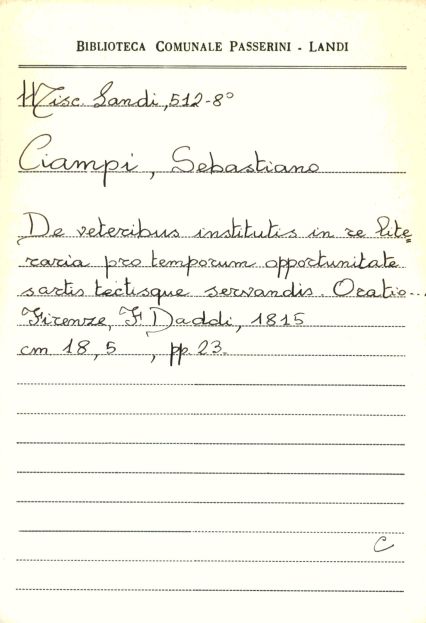 BIBLIOTECA COMUNALE PASSERINI - LANDI
Misc. Landi, 512-8°
Ciampi, Sebastiano
De veteribus institutis in re lite=
raria pro temporum opportunitate
sartis tectisque servandis. Oratio...
Firenze, F. Daddi, 1815
cm 18,5 , pp. 23.
C